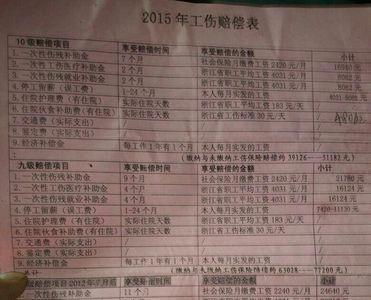 2015年工伤赔偿表
10级赔偿项目 享受赔偿时间 享受赔偿的金额 小计
1. 一次性伤残补助金 7个月 社会保险月缴费工资 2420 元/月
2. 一次性工伤医疗补助金 2个月 浙江省职工平均工资 4031 元/月 8062
3. 一次性伤残就业补助金 2个月 浙江省职工平均工资 4031 元/月 8062
4. 停工留薪（误工费） 1-24个月 本人每月实发的工资
5. 住院护理费（有住院） 实际住院天数 浙江省职平均工资 183 元/天 /
6. 住院伙食补助费（有住院） 实际住院天数 浙江省工伤标准 30 元/天
7. 交通费（实际支出） / / /
8. 鉴定费（实际支出） / / /
9. 经济补偿金 每工作1年有1个月 本人每月实发的工资
（缴纳与未缴纳工伤保险赔偿约 39126---51182元）
九级赔偿项目 享受赔偿时间 享受赔偿的金额 小计
1. 一次性伤残补助金 9个月 社会保险月缴费工资 2420 元/月 21780
2. 一次性工伤医疗补助金 4个月 浙江省职工平均工资 4031 元/月 16124
3. 一次性伤残就业补助金 4个月 浙江省职工平均工资 4031 元/月 16124
4. 停工留薪（误工费） 1-24个月 本人每月实发的工资
5. 住院护理费（有住院） 实际住院天数 浙江省职平均工资 183 元/天 /
6. 住院伙食补助费（有住院） 实际住院天数 浙江省工伤标准 30 元/天 /
7. 交通费（实际支出） / / /
8. 鉴定费（实际支出） / / /
9. 经济补偿金 每工作1年有1个月 本人每月实发的工资
总计 （缴纳与未缴纳工伤保险赔偿约 63028---77200元）
赔偿项目 享受赔偿时间 享受赔偿的金额 小计
一次性伤残补助金 11个月 社会保险月缴费工资 2240 元/月 24640